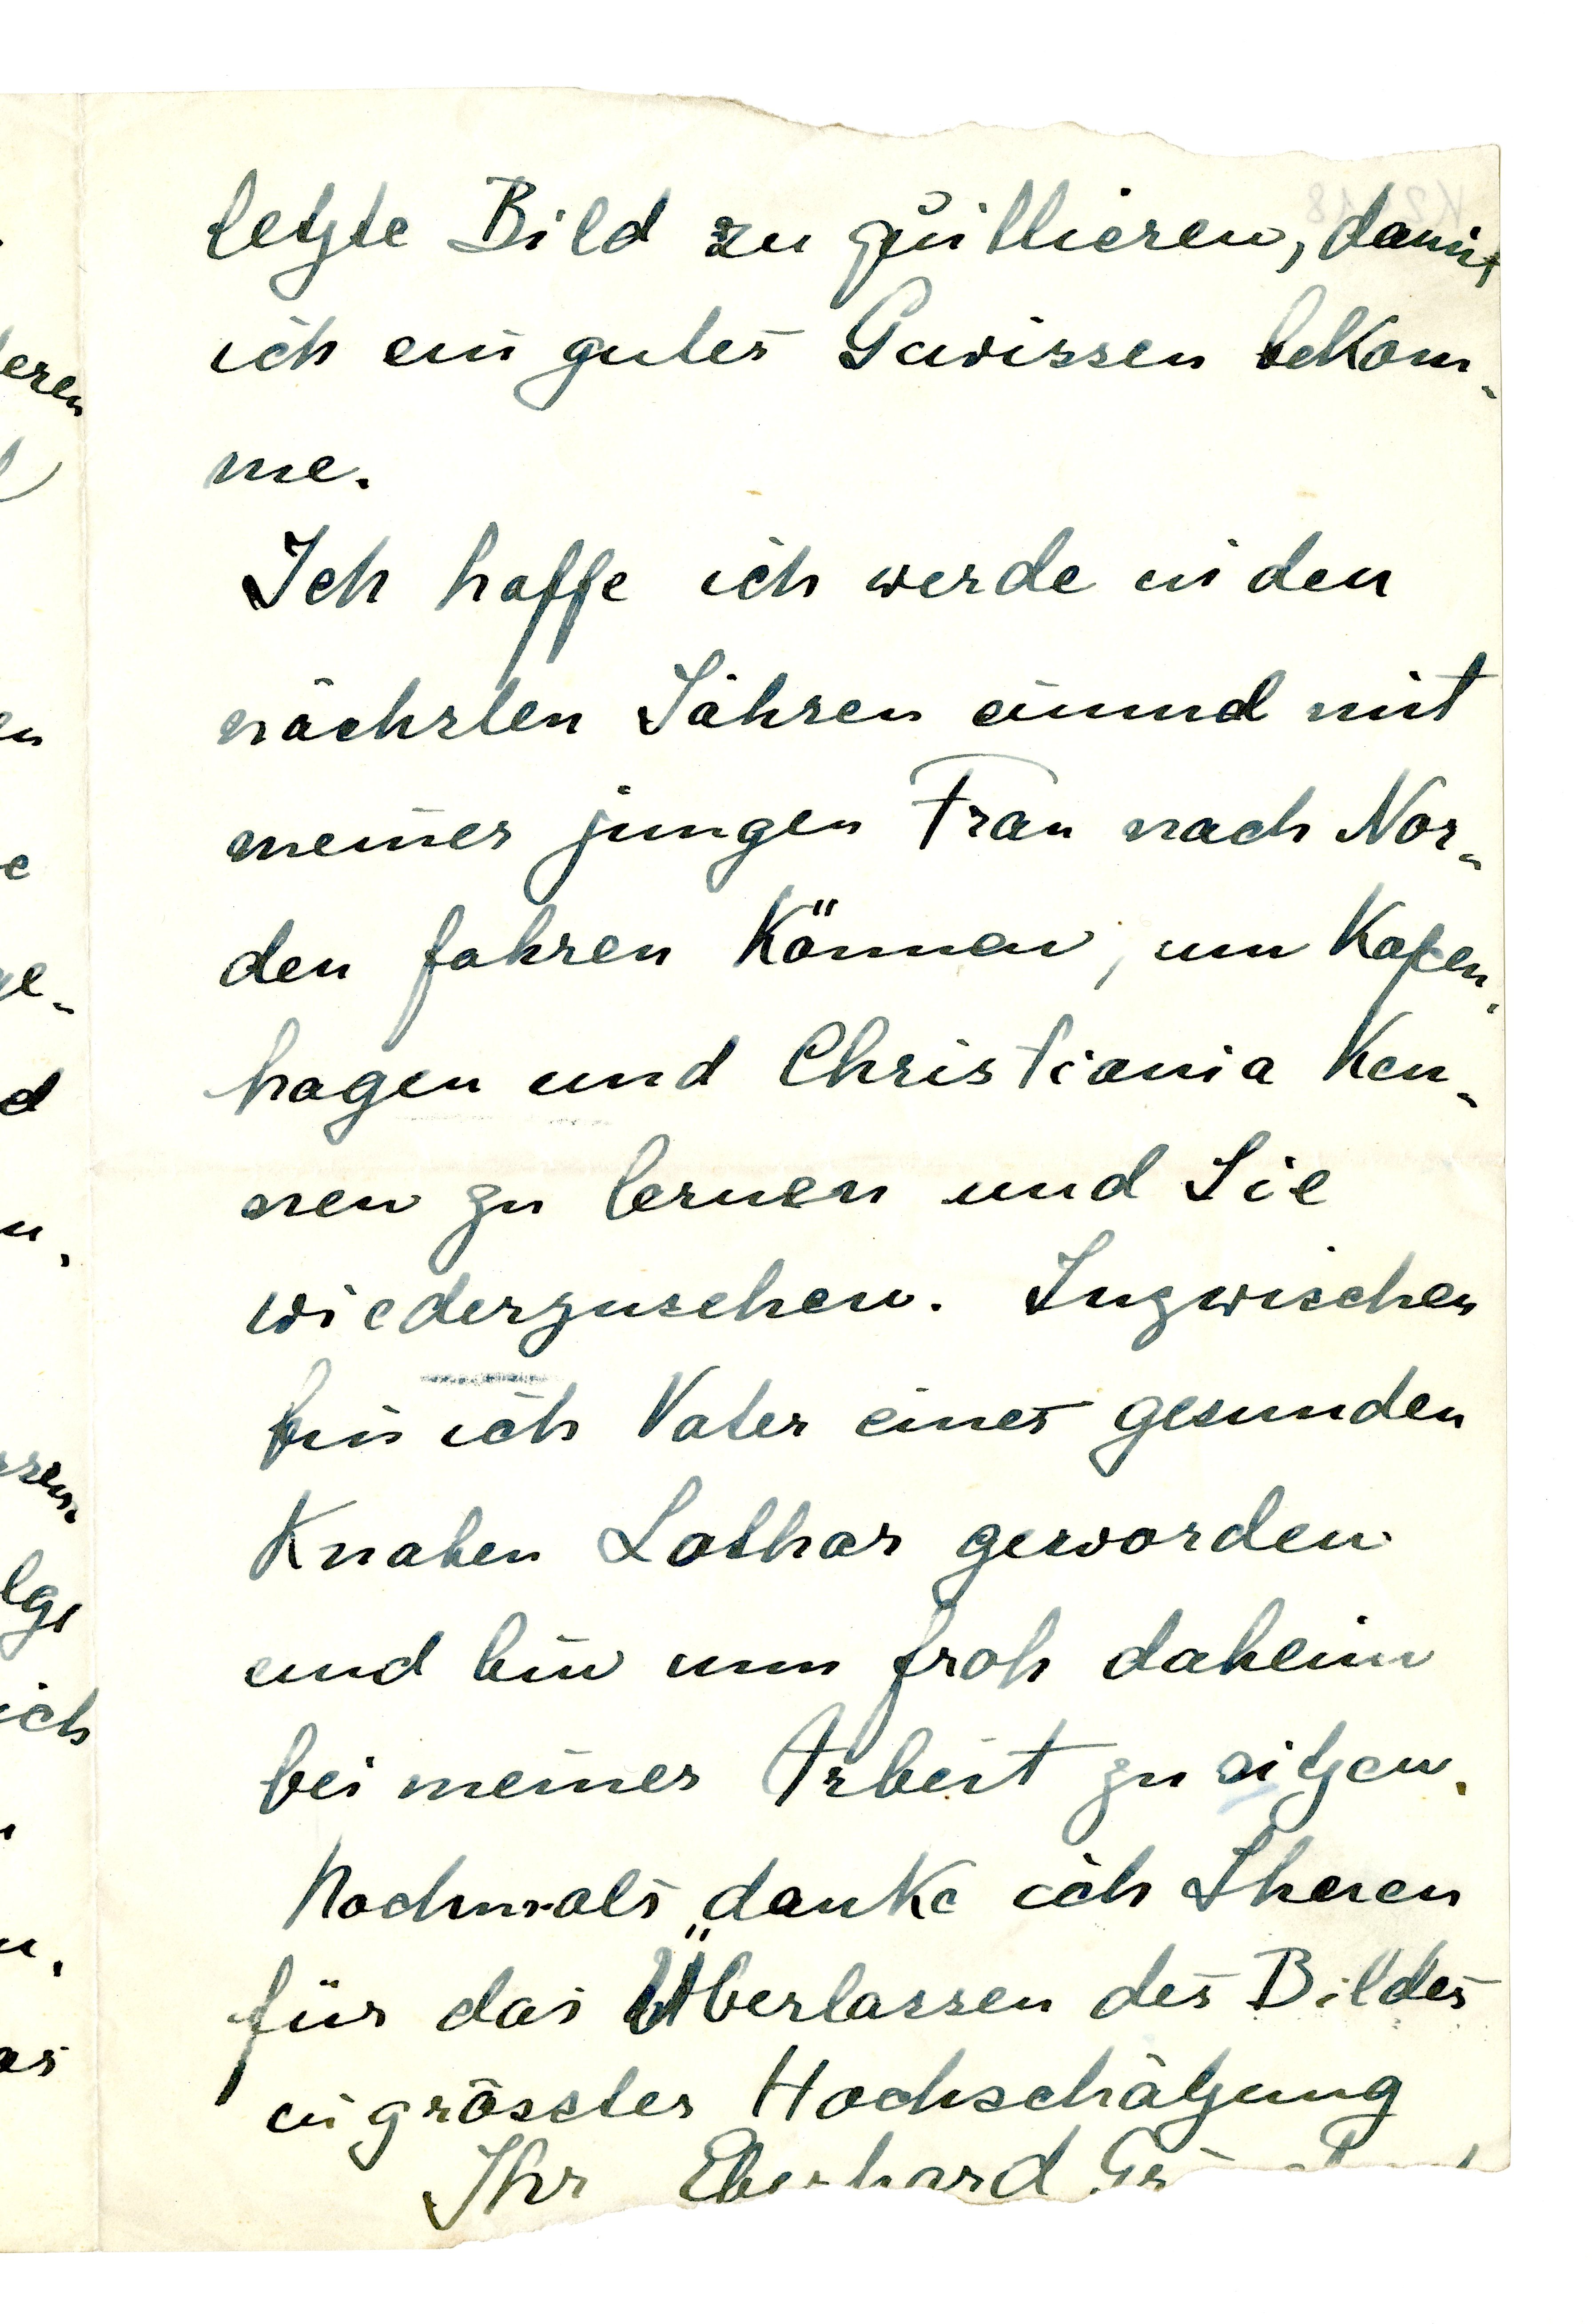 letzte Bild zu quittieren, damit
ich ein gutes Gewissen bekom-
me.
Ich hoffe ich werde in den
nächsten Jahren einmal mit
meiner jungen Frau nach Nor-
den fahren können, um Kopen-
hagen und Christiania ken-
nen zu lernen und Sie
wiederzusehen. Inzwischen
bin ich Vater eines gesunden
Knaben Lothar geworden
und bin nun froh daheim
bei meiner Arbeit zu sitzen.
Nochmals danke ich Ihnen
für das Überlassen des Bildes
in grösster Hochschätzung
Ihr Eberhard